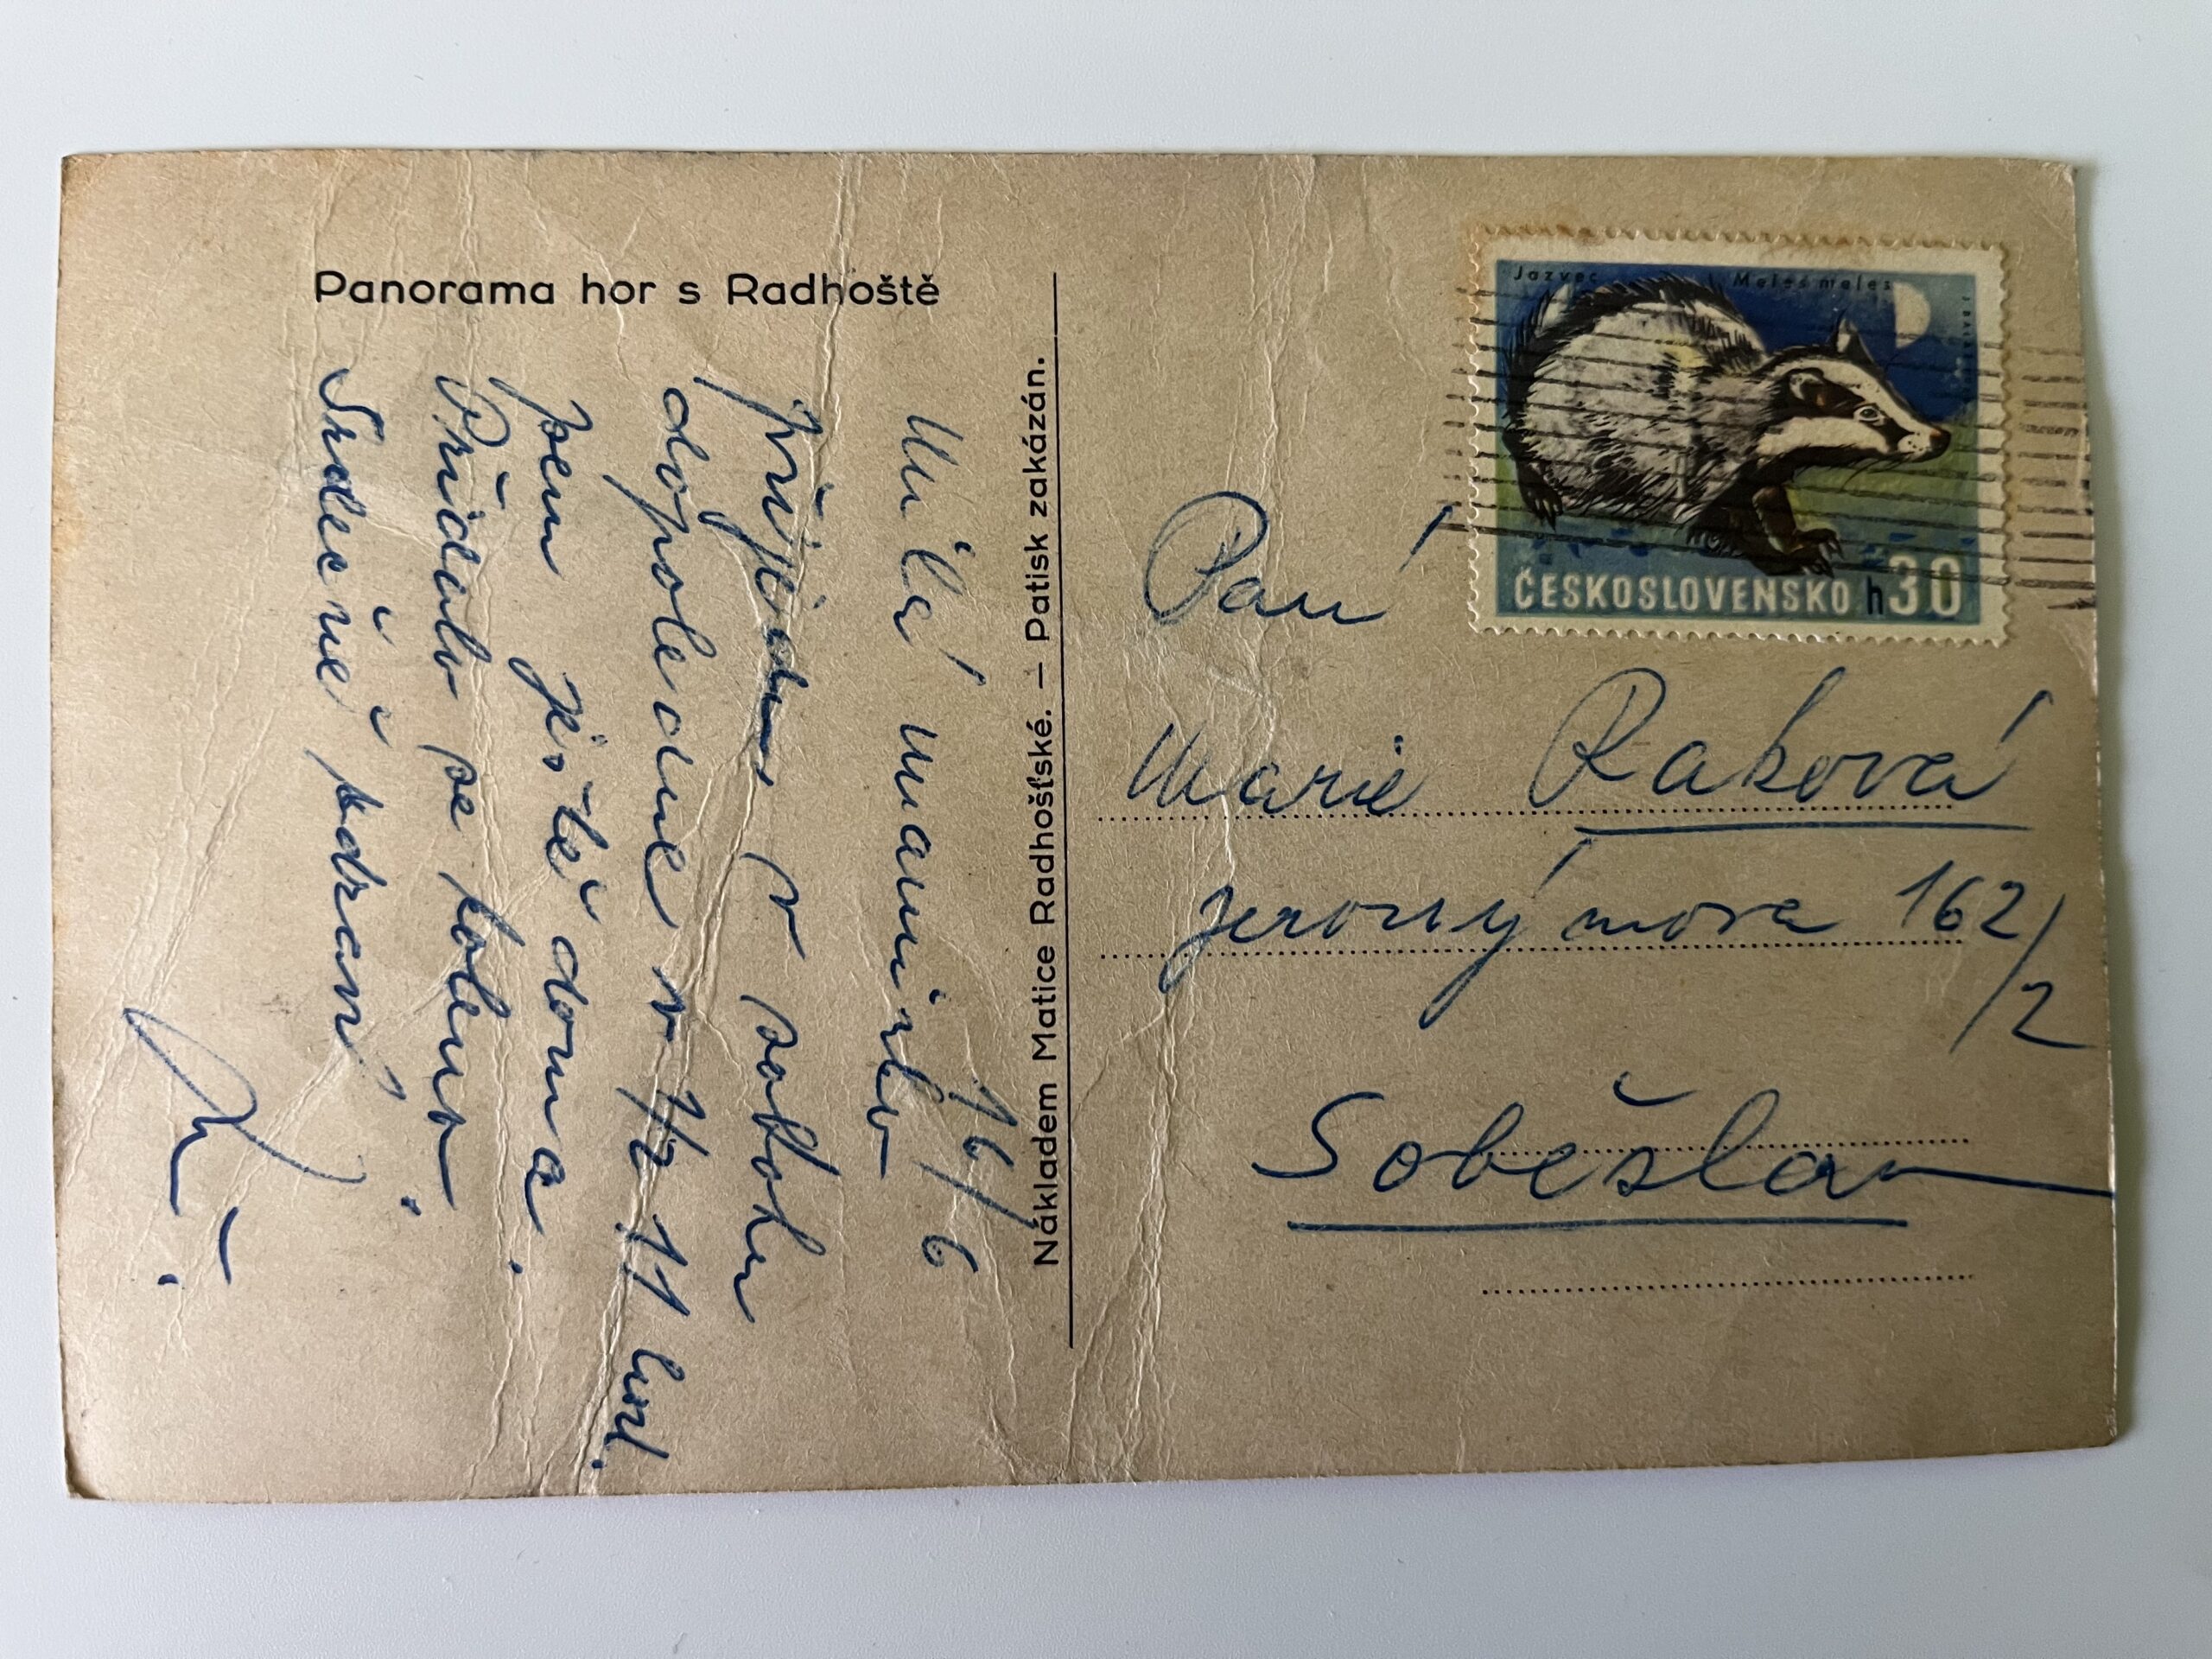 Panorama hor s Radhoště
16/6
Milá maminko
přijedu v sobotu
dopoledne v 1/2 11 hod.
jsem ještě doma.
Přidalo se koleno.
Srdečně zdraví
Nákladem Matice Radhošťské. – Patisk zakázán.
Jazvec Meles meles
ČESKOSLOVENSKO h30
Paní
Marie Raková
Jeronýmova 162/2
Soběslav